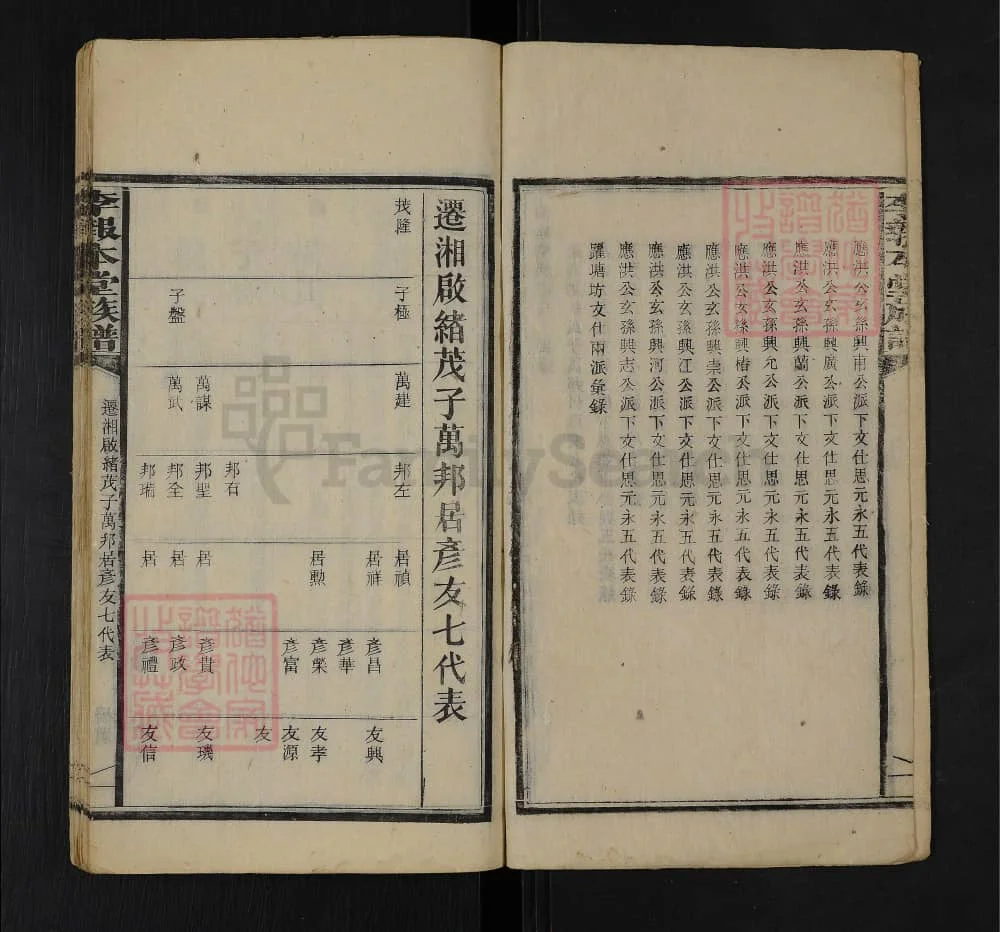 應洪公玄孫興甫公派下文仕思元永五代表錄
應洪公玄孫興廣公派下文仕思元永五代表錄
應洪公玄孫興蘭公派下文仕思元永五代表錄
應洪公玄孫興允公派下文仕思元永五代表錄
應洪公玄孫興椿公派下文仕思元永五代表錄
應洪公玄孫興崇公派下文仕思元永五代表錄
應洪公玄孫興江公派下文仕思元永五代表錄
應洪公玄孫興河公派下文仕思元永五代表錄
應洪公玄孫興志公派下文仕思元永五代表錄
躍塘坊文仕兩派彙錄
遷湘啟緒茂子萬邦居彥友七代表
茂隆
子極 子盤
萬建 萬謀 萬武
邦左 邦石 邦聖 邦全 邦瑞
居禎 居祥 居勲 居 居 居
彥昌 彥華 彥榮 彥富 彥貴 彥政 彥禮
友興 友孝 友源 友 友璣 友信
李報本堂族譜
遷湘啟緒茂子萬邦居彥友七代表
一
FamilySearch